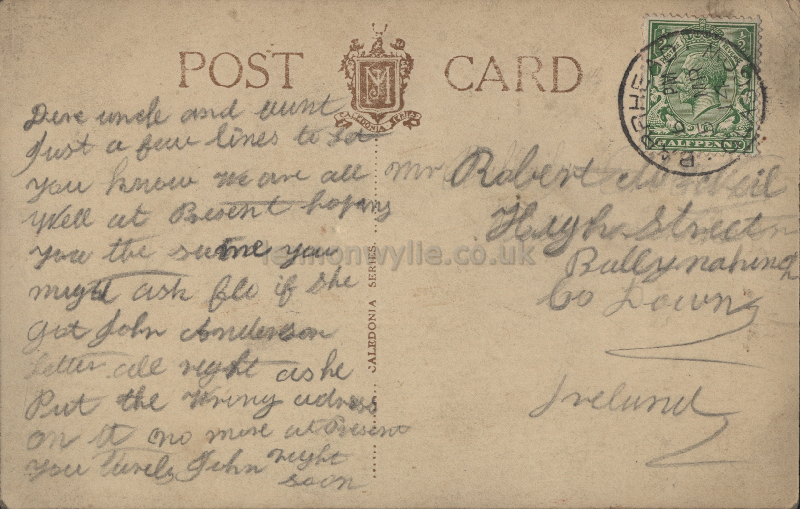 POST CARD
CALEDONIA SERIES
Dere uncle and aunt
Just a few lines to let
you know we are all
Well at Present hoping
you the same you
might ask flo if she
got John Anderson
letter all right as he
Put the wring adress
on it no more at Present
you turely John right
soon
CALEDONIA SERIES
Mr Robert McNeil
High Street
Ballynahinch
Co Down
Ireland
HALFPENNY
BURGHEAD
vernonwylie.co.uk